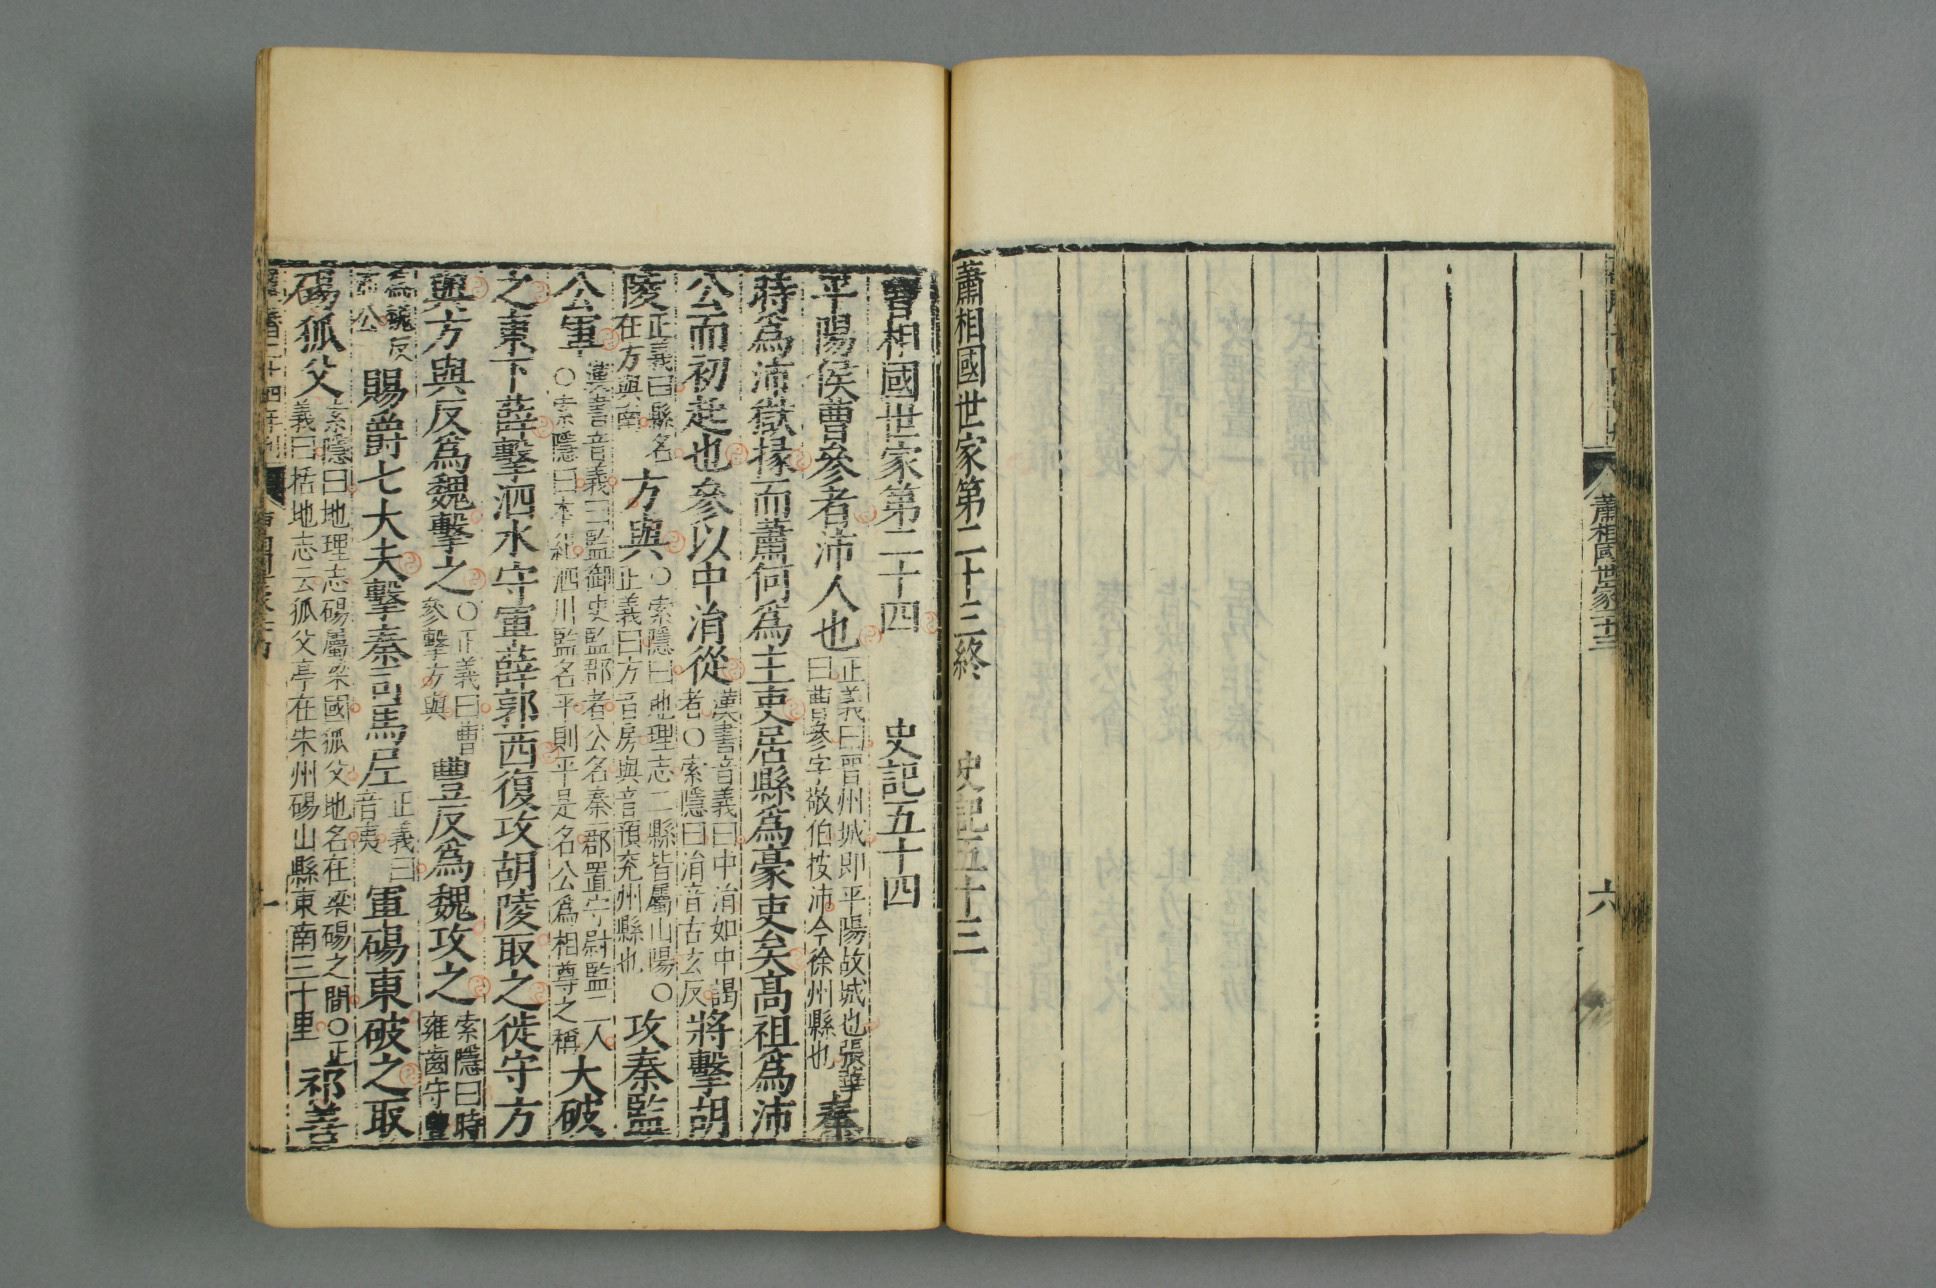 蕭相國世家二十三 六
蕭相國世家第二十三終 史記五十三
曹相國世家第二十四 史記五十四
平陽侯曹參者沛人也 正義曰晉州城即平陽故城也張華曰曹參字敬伯按沛今徐州縣也 秦
時爲沛獄掾而蕭何爲主吏居縣爲豪吏矣高祖爲沛
公而初起也參以中涓從 漢書音義曰中涓如中謁者〇索隱曰涓音古玄反 將擊胡
陵 正義曰縣名在方與南 方與 〇索隱曰地理志二縣皆屬山陽〇正義曰方音房與音預兗州縣也 攻秦監
公軍 漢書音義曰監御史監郡者公名秦一郡置守尉監二人〇索隱曰本紀泗川監名平則平是名公爲相尊之稱 大破
之東下薛擊泗水守軍薛郭西復攻胡陵取之徙守方
與方與反爲魏擊之 〇正義曰曹參擊方與 豐反爲魏攻之 索隱曰時雍齒守豐
爲魏反沛公 賜爵七大夫擊秦司馬𡰥 正義曰音夷 軍碭東破之取
碭狐父 索隱曰地理志碭屬梁國狐父地名在梁碭之間〇正義曰括地志云狐父亭在朱州碭山縣東南三十里 祁善
一